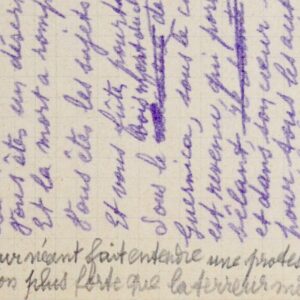 Vous êtes un déser
Et la mort a romp
Vous êtes les sujets
Et vous fûtes pourta
Sous le de
Guernica, sous le c
est revenu, qui por
bêlant
et dans son cœur
pour tous les aut
ur néant fait entendre une protes
on plus forte que la terreur m